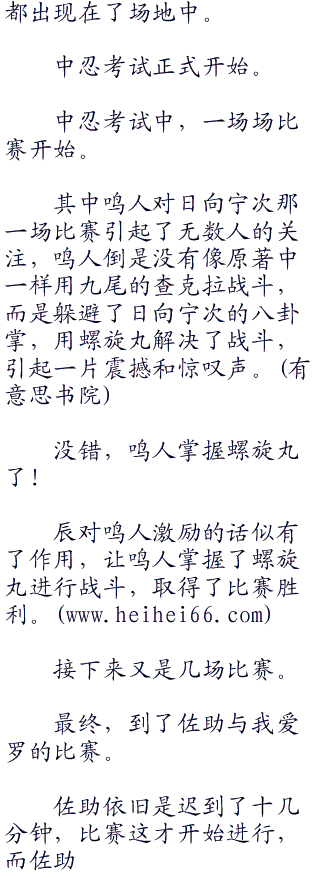 都出现在了场地中。
中忍考试正式开始。
中忍考试中，一场场比
赛开始。
其中鸣人对日向宁次那
一场比赛引起了无数人的关
注，鸣人倒是没有像原著中
一样用九尾的查克拉战斗，
而是躲避了日向宁次的八卦
掌，用螺旋丸解决了战斗，
引起一片震撼和惊叹声。(有
意思书院)
没错，鸣人掌握螺旋丸
了!
辰对鸣人激励的话似有
了作用，让鸣人掌握了螺旋
丸进行战斗，取得了比赛胜
利。(www.heihei66.com)
接下来又是几场比赛。
最终，到了佐助与我爱
罗的比赛。
佐助依旧是迟到了十几
分钟，比赛这才开始进行，
而佐助